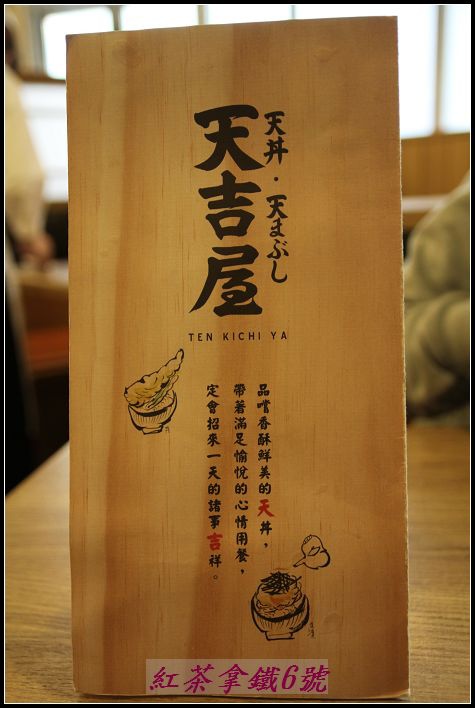 天丼・天まぶし
天吉屋
TEN KICHI YA
品嚐香酥鮮美的天丼，
帶著滿足愉悅的心情用餐，
定會招來一天的諸事吉祥。
紅茶拿鐵6號